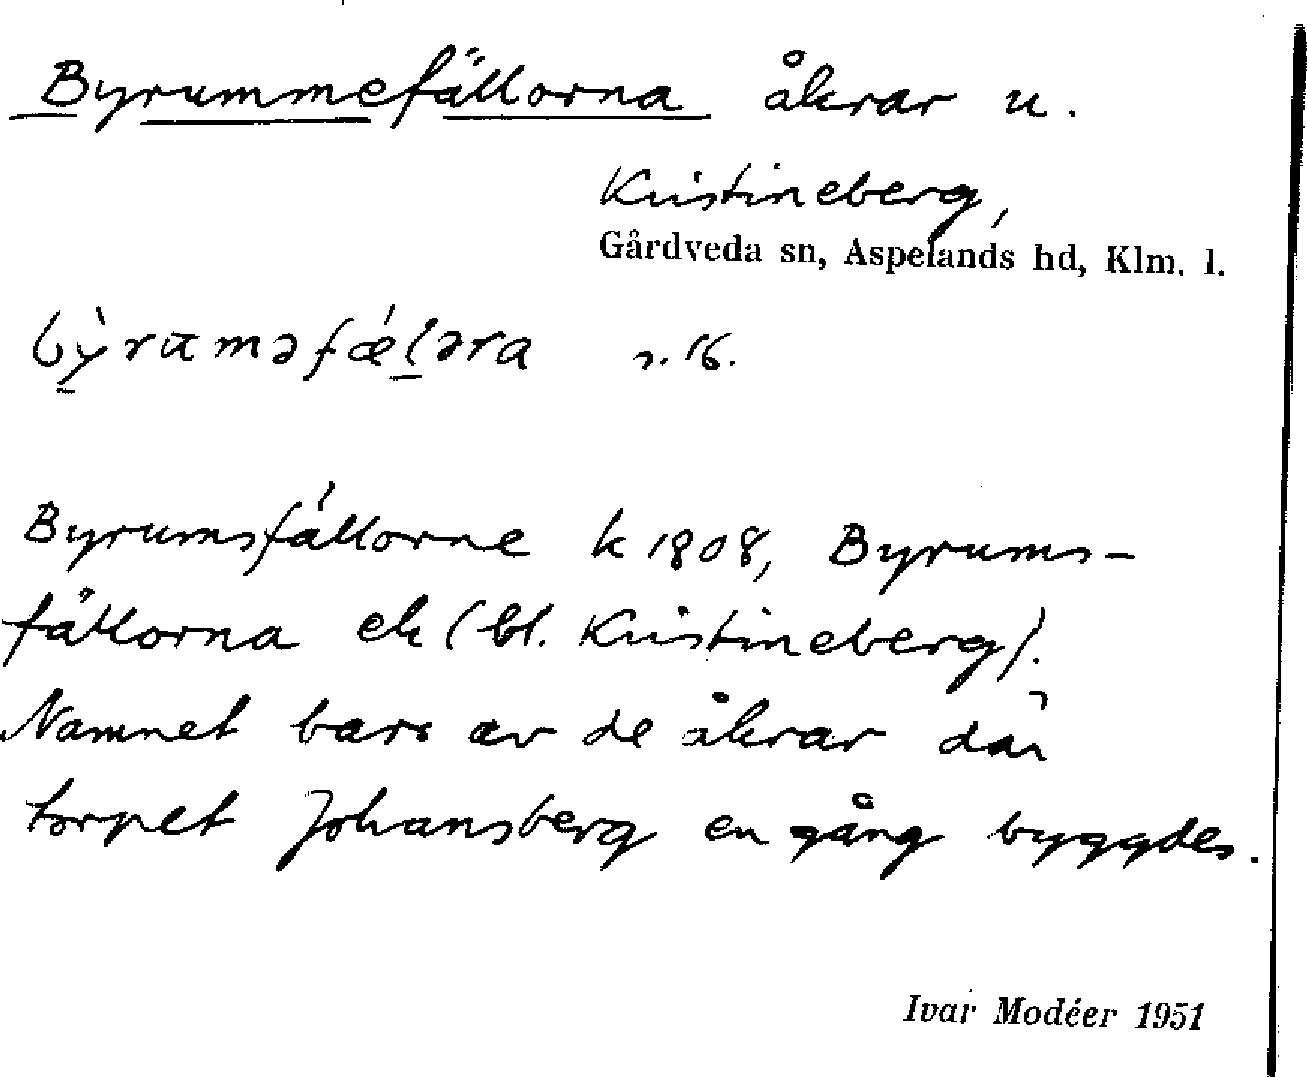 Byrummefällorna åkrar u.
Kristineberg,
Gårdveda sn, Aspelands hd, Klm. l.
bỳruməfǽlərа s. 16.
Byrumsfällorne k 1808, Byrums-
fällorna ek (bl. Kristineberg).
Namnet bars av de åkrar där
torpet Johansberg en gång byggdes.
Ivar Modéer 1951